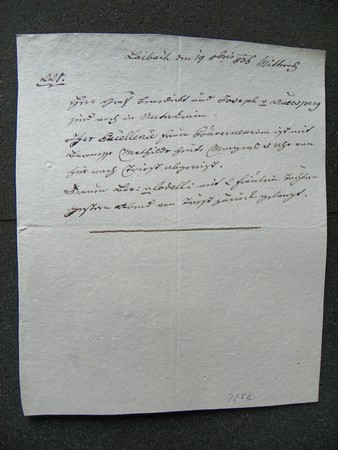 Laibach den 19 8bris 836 Mittwoch
221.
Herr Graf Benedikt und Joseph v Auersperg
sind noch in Unterkrain
Ihre Excellenz Frau Gouverneurin ist mit
Mathilde heute Morgens 5 Uhr von
hier nach Triest abgereist.
v Codelli mit 2 Fräulein Töchter
gestern Abend von Triest zurück gelangt.